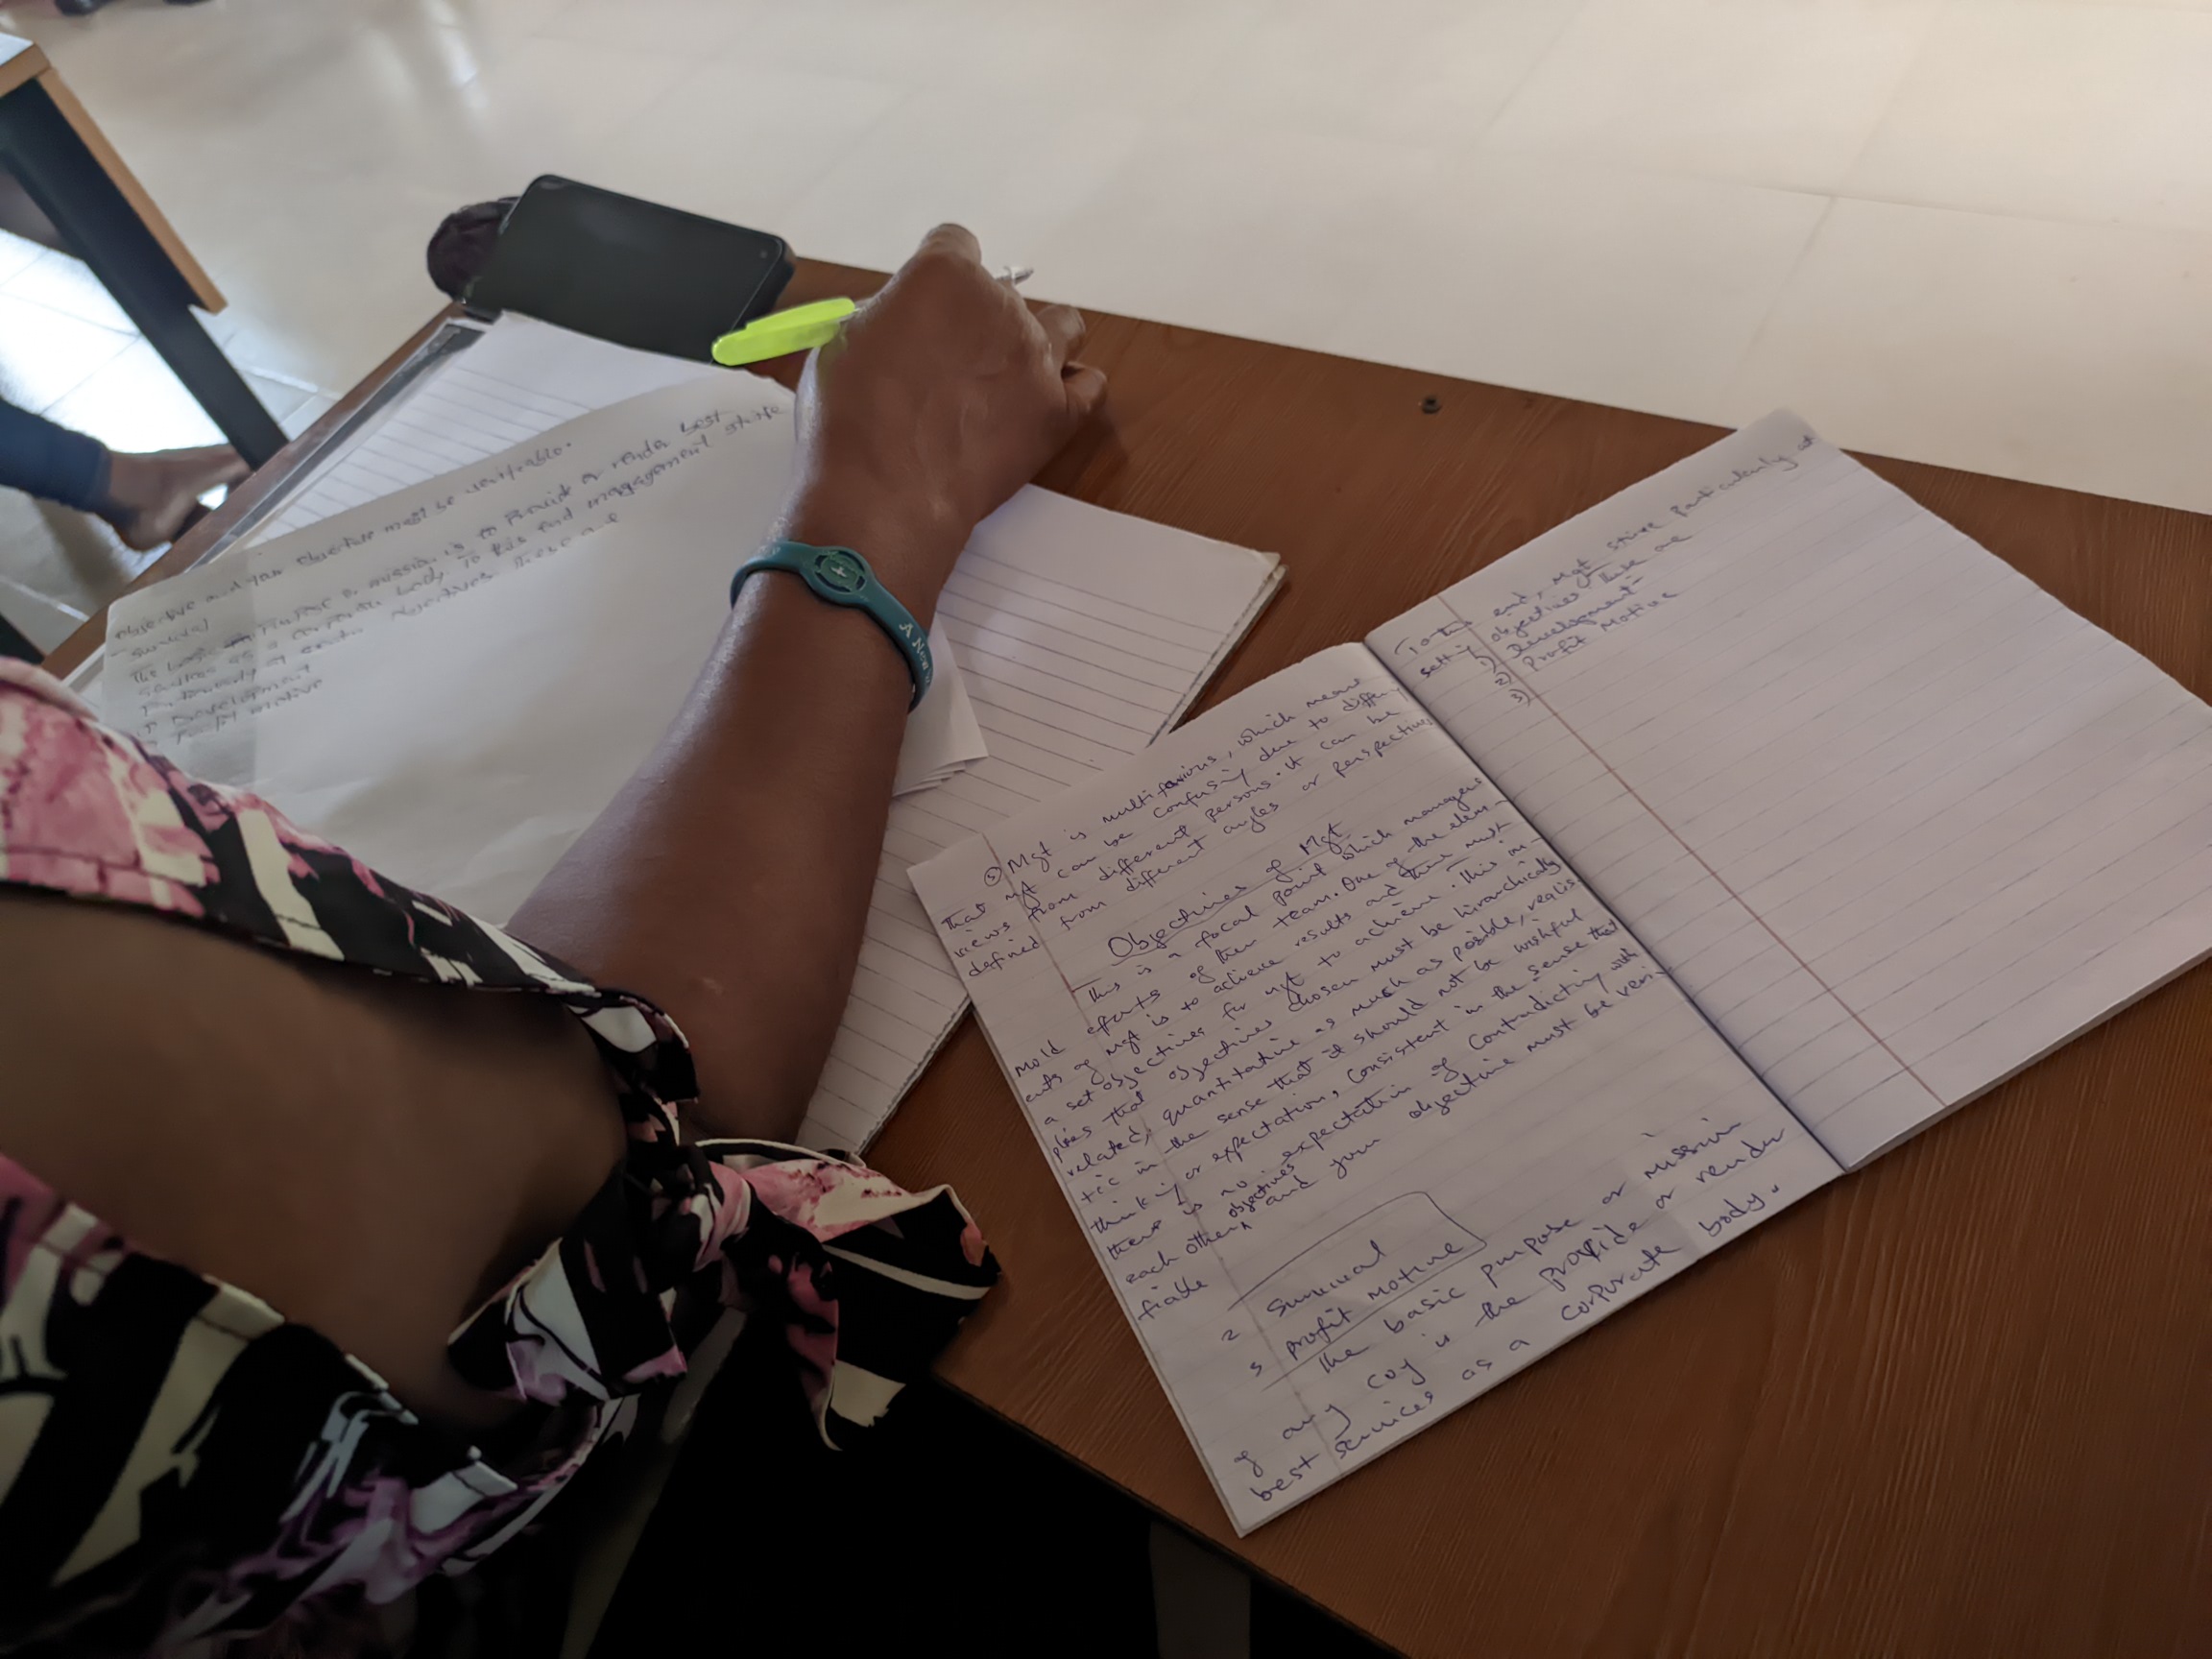 objective and your objective must be verifiable.
- Survival
The basic purpose or mission is to provide or render best
services as a corporate body. To this end management strive
particularly at certain objectives these are
1) Development
2) Profit motive
A NEW
⑤ Mgt is multifarious, which means
that mgt can be confusing due to differing
views from different persons. It can be
defined from different angles or perspectives
Objectives of Mgt
This is a focal point which managers
mold efforts of their team. One of the elem-
ents of mgt is to achieve results and there must
a set objectives for mgt to achieve. This im-
plies that objectives chosen must be hirarchically
related, quantitative as much as posible, realis-
tic in the sense that it should not be wishful
thinking or expectation, consistent in the sense that
there is no expectation of contradicting with
each other objectives and your objective must be veri-
fiable
2 Survival
3 profit motive
The basic purpose or mission
of any coy is the provide or render
best services as a corporate body.
To this end, Mgt strive particularly at
setting objectives, these are
1) Development
2) Profit Motive
3)